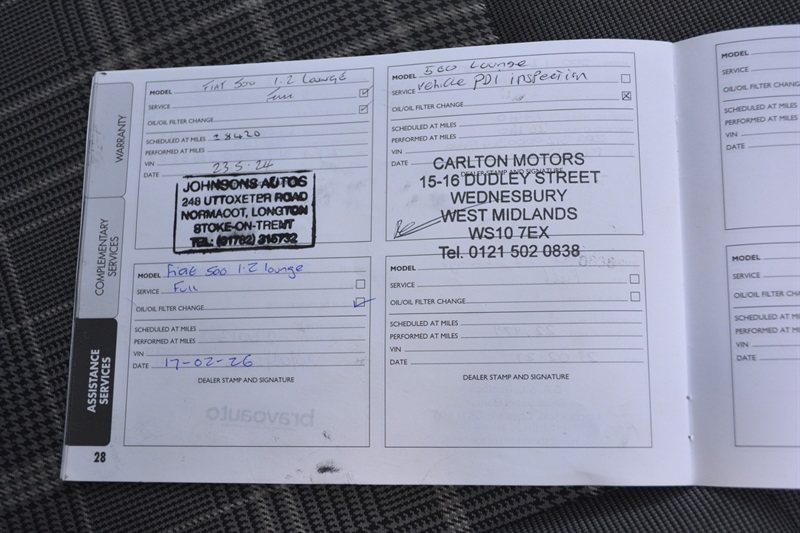 WARRANTY
COMPLEMENTARY
SERVICES
ASSISTANCE
SERVICES
28
MODEL FIAT 500 1.2 Lounge
SERVICE Full
OIL/OIL FILTER CHANGE
SCHEDULED AT MILES
PERFORMED AT MILES
VIN
DATE 23.5.24
JOHNSONS AUTOS
248 UTTOXETER ROAD
NORMACOT, LONGTON
STOKE-ON-TRENT
TEL: (01782) 315732
MODEL 500 Lounge
SERVICE Vehicle PDI inspection
OIL/OIL FILTER CHANGE
SCHEDULED AT MILES
PERFORMED AT MILES
VIN
DATE
DEALER STAMP AND SIGNATURE
CARLTON MOTORS
15-16 DUDLEY STREET
WEDNESBURY
WEST MIDLANDS
WS10 7EX
Tel. 0121 502 0838
MODEL Fiat 500 1.2 lounge
SERVICE Full
OIL/OIL FILTER CHANGE
SCHEDULED AT MILES
PERFORMED AT MILES
VIN
DATE 17-02-26
DEALER STAMP AND SIGNATURE
MODEL
SERVICE
OIL/OIL FILTER CHANGE
SCHEDULED AT MILES
PERFORMED AT MILES
VIN
DATE
DEALER STAMP AND SIGNATURE
MODEL
SERVICE
OIL/OIL FILTER CHA
SCHEDULED AT M
PERFORMED AT M
VIN
DATE
MODEL
SERVICE
OIL/OIL FILTER CHA
SCHEDULED AT MI
PERFORMED AT MI
VIN
DATE